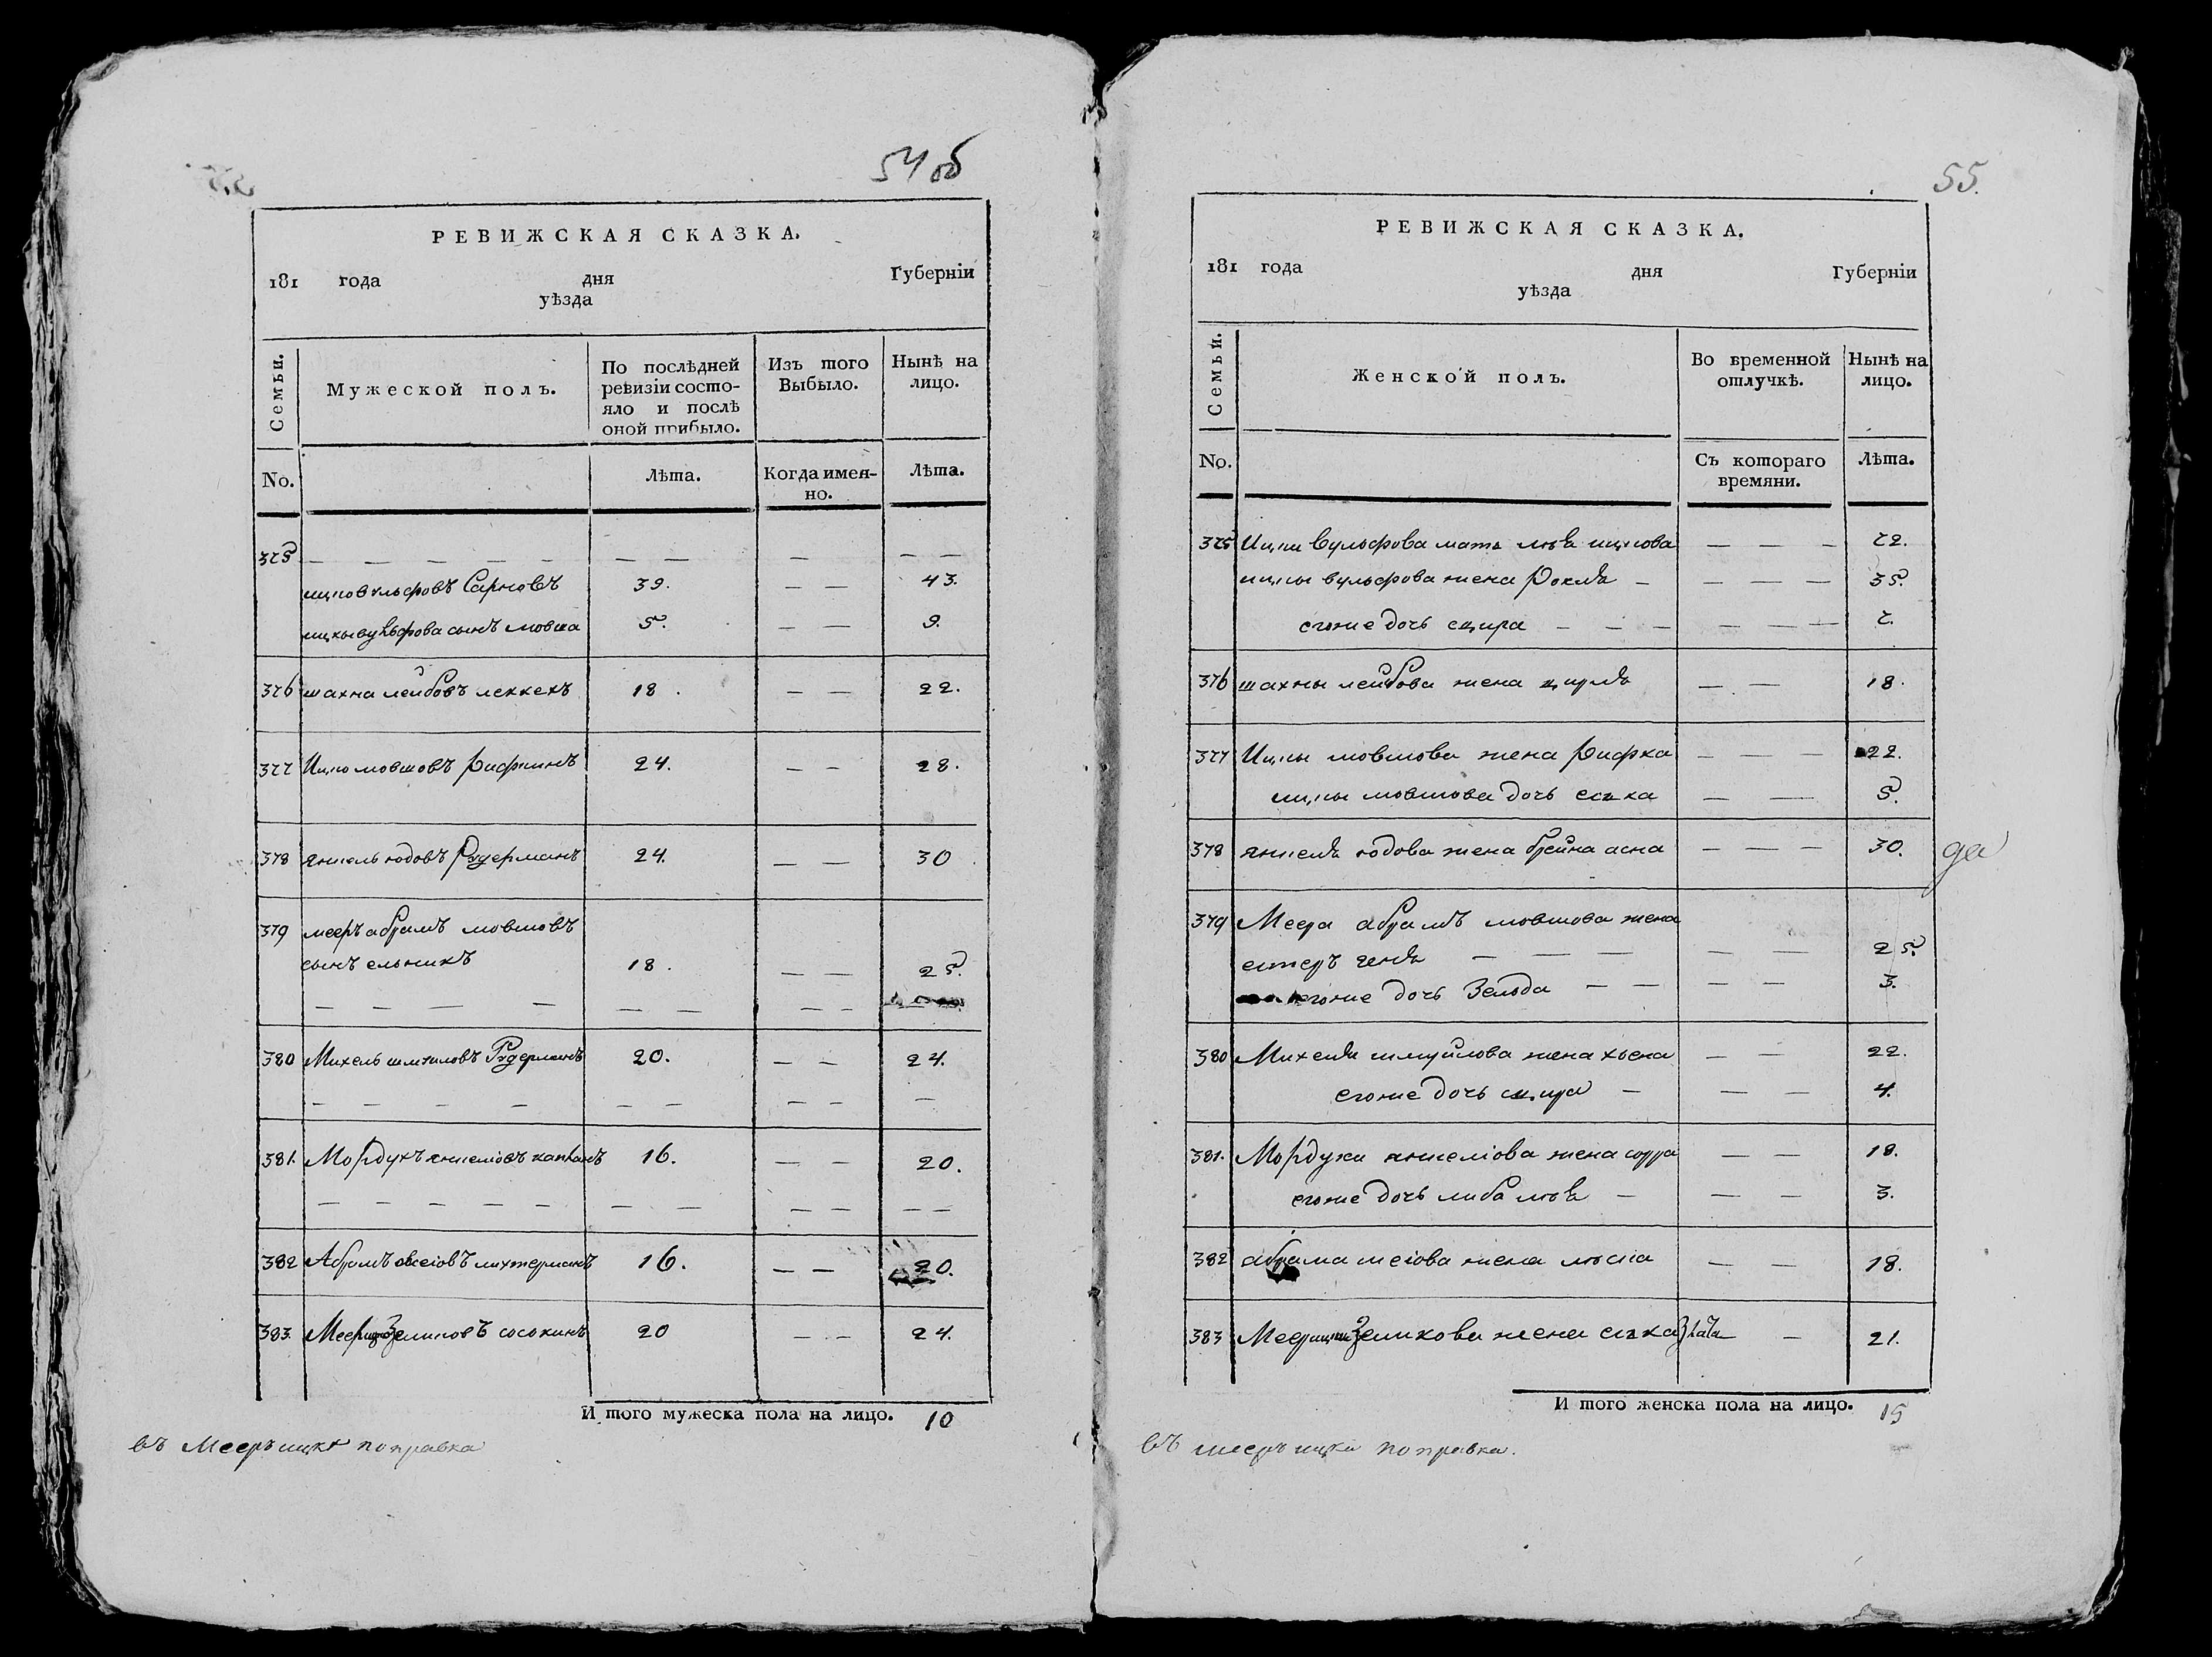 54 об
РЕВИЖСКАЯ СКАЗКА.
181 года дня Губерніи
уѣзда
Семьи.
Мужеской полъ.
По послѣдней ревизіи состо-
яло и послѣ
оной прибыло.
Изъ того
Выбыло.
Нынѣ на
лицо.
No.
Лѣта.
Когда имен-
но.
Лѣта.
325 — — — — — — — — — —
ицковульфовъ 39. — — 43.
ицкы вульфова сынъ мовша 5. — — 9.
376 шахна лейбовъ 18. — — 22.
377 Ицко мовшовъ Рифкинъ 24. — — 28.
378 янкель юдовъ Рудерманъ 24. — — 30
379 мееръ абрамъ мовшовъ
сынъ ельникъ 18. — — 25.
— — — — — — — —
380 Михель шмуиловъ Рудерманъ 20. — — 24.
— — — — — — — — —
381. Мордухъ янкеліовъ капланъ 16. — — 20.
— — — — — — — — — — —
382 Абрамъ лихтерманъ 16. — — 20.
383. Мееръицко Зеликовъ сосокинъ 20 — — 24.
И того мужеска пола на лицо. 10
въ Мееръ ицка поправка
55.
РЕВИЖСКАЯ СКАЗКА.
181 года дня Губерніи
уѣзда
Семьи.
Женской полъ.
Во временной
отлучкѣ.
Нынѣ на
лицо.
No.
Съ котораго
времяни.
Лѣта.
325 Ицки вульфова мать ицкова — — — 72.
ицкы вульфова жена Рохля — — — — 35.
егоже дочь сцира — — — — — — 7.
376 шахны лейбова жена цирля — — 18.
377 Ицкы мовшова жена Рифка — — — 22.
ицкы мовшова дочь еска — — 5.
378 янкеля юдова жена брейна асна — — — 30. да
379 Меера абрамъ мовшова жена
естеръ геня — — — — — 25.
егоже дочь Зельда — — — — 3.
380 Михеля шмуйлова жена хьена — — 22.
егоже дочь сцира — — — 4.
381. Мордуха янкеліова жена сорра — — 18.
егоже дочь либа — — — 3.
382 абрама жена — — 18.
383 Мееръ ицки Зеликова жена еска Злата — 21.
И того женска пола на лицо. 15
въ мееръ ицки поправка.